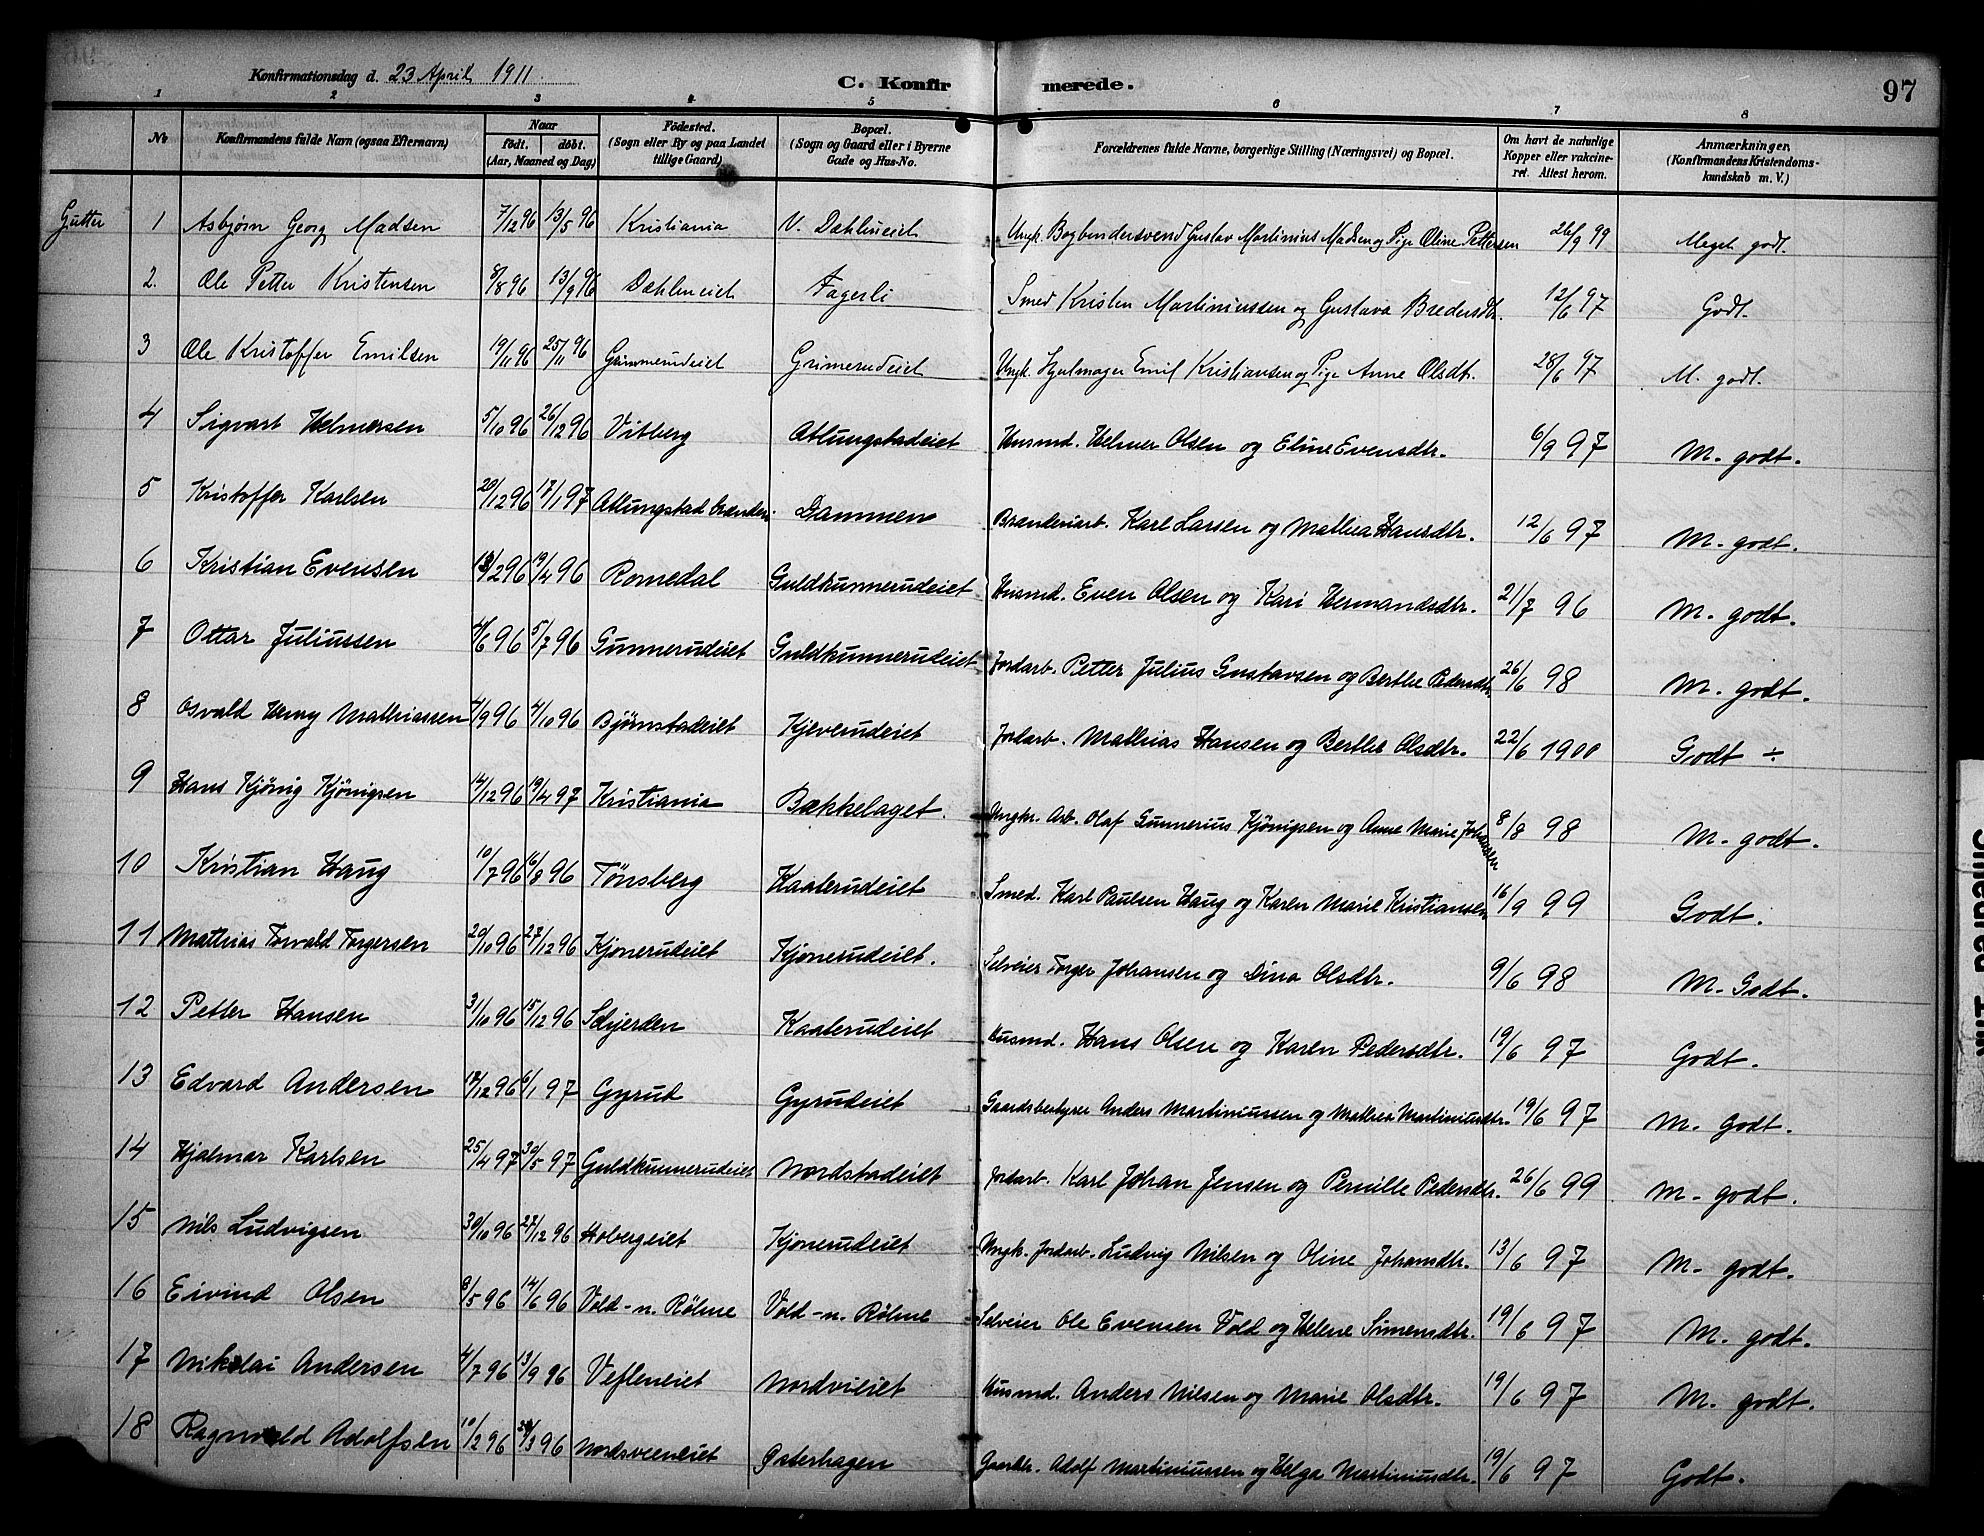 Konfirmationsdag d. 23 April 1911
C. Konfirmerede.
97
1 2 3 4 5 6 7 8
No Konfirmandens fulde Navn (ogsaa Efternavn) Naar født. døbt. (Aar, Maaned og Dag) Födested. (Sogn eller By og paa Landet tillige Gaard) Bopæl. (Sogn og Gaard eller i Byerne Gade og Hus-No. Forældrenes fulde Navne, borgerlige Stilling (Næringsvei) og Bopæl. Om havt de naturlige Kopper eller vakcineret. Attest herom. Anmærkninger. (Konfirmandens Kristendomskundskab m. V.)
Gutter 1 Asbjørn Georg Madsen 7/12 96 13/5 96 Kristiania V. Dæhlineiet Ungk. Bogbindersvend Gustav Martinius Madsen og Pige Oline Pettersen 26/9 99 Meget godt.
2. Ole Petter Kristensen 8/8 96 13/9 96 Dæhlineiet Fagerli Smed Kristen Martiniussen og Gustava Bredersdtr. 12/6 97 Godt.
3 Ole Kristoffer Emilsen 19/11 96 25/11 96 Grimmerudeiet Grimerudeiet Ungk. Hjulmager Emil Kristiansen og Pige Anne Olsdt. 28/6 97 M. godt.
4 Sigvart Helmersen 5/10 96 26/12 96 Vitberg Atlungstadeiet Husmd. Helmer Olsen og Eline Evensdtr. 6/9 97 M. godt.
5 Kristoffer Karlsen 20/12 96 17/1 97 Atlungstad brænderi Dammen Brænderiarb. Karl Larsen og Mathea Hansdtr. 12/6 97 M. godt.
6 Kristian Evensen 18/2 96 19/4 96 Romedal Guldkunnerudeiet Husmd. Even Olsen og Kari Hermandsdtr. 21/7 96 M. godt.
7 Ottar Juliussen 4/6 96 5/7 96 Gunnerudeiet Guldkunnerudeiet Jordarb. Petter Julius Gustavsen og Berthe Pedersdtr. 26/6 98 M. godt.
8 Osvald Henry Mathiassen 4/9 96 4/10 96 Bjørnstadeiet Kjeverudeiet Jordarb. Mathias Hansen og Berthe Olsdtr. 22/6 1900 Godt ÷
9 Hans Kjönig Kjönigsen 14/12 96 19/4 97 Kristiania Bækkelaget. Ungkr. Arb. Olaf Gunnerius Kjönigsen og Anne Marie Johansen 8/8 98 M. godt.
10 Kristian Haug 10/7 96 16/8 96 Tönsberg Kaaterudeiet Smed. Karl Paulsen Haug og Karen Marie Kristiansen 16/9 99 Godt.
11 Mathias Torvald Torgersen 20/10 96 27/12 96 Kjonerudeiet Kjonerudeiet. Selveier Torger Johansen og Dina Olsdtr. 9/6 98 M. Godt.
12 Petter Hansen 31/10 96 15/12 96 Skjerden Kaaterudeiet Husmd. Hans Olsen og Karen Pedersdtr. 19/6 97 Godt.
13 Edvard Andersen 17/12 96 6/1 97 Gyrud Gyrudeiet Gaardsbestyrer Anders Martiniussen og Mathea Martiniusdtr. 19/6 97 M. godt.
14 Hjalmar Karlsen 25/4 97 30/5 97 Guldkunnerudeiet Nordstadeiet Jordarb. Karl Johan Jensen og Pernille Pedersdtr. 26/6 99 M. godt.
15 Nils Ludvigsen 30/10 96 27/12 96 Hobergeiet Kjonerudeiet Ungk. Jordarb. Ludvig Nilsen og Oline Johansdtr. 13/6 97 M. godt.
16 Eivind Olsen 8/5 96 14/6 96 Vold-n. Röhne Vold-n. Röhne Selveier Ole Evensen Vold og Helene Simensdtr. 19/6 97 M. godt.
17 Nikolai Andersen 4/7 96 13/9 96 Vefleneiet Nordvieiet Husmd. Anders Nilsen og Marie Olsdtr. 19/6 97 M. godt.
18 Ragnvald Adolfsen 10/2 96 /3 96 Nordsveeneiet Østerhagen Gaardbr. Adolf Martiniussen og Helga Martiniusdtr. 19/6 97 Godt.